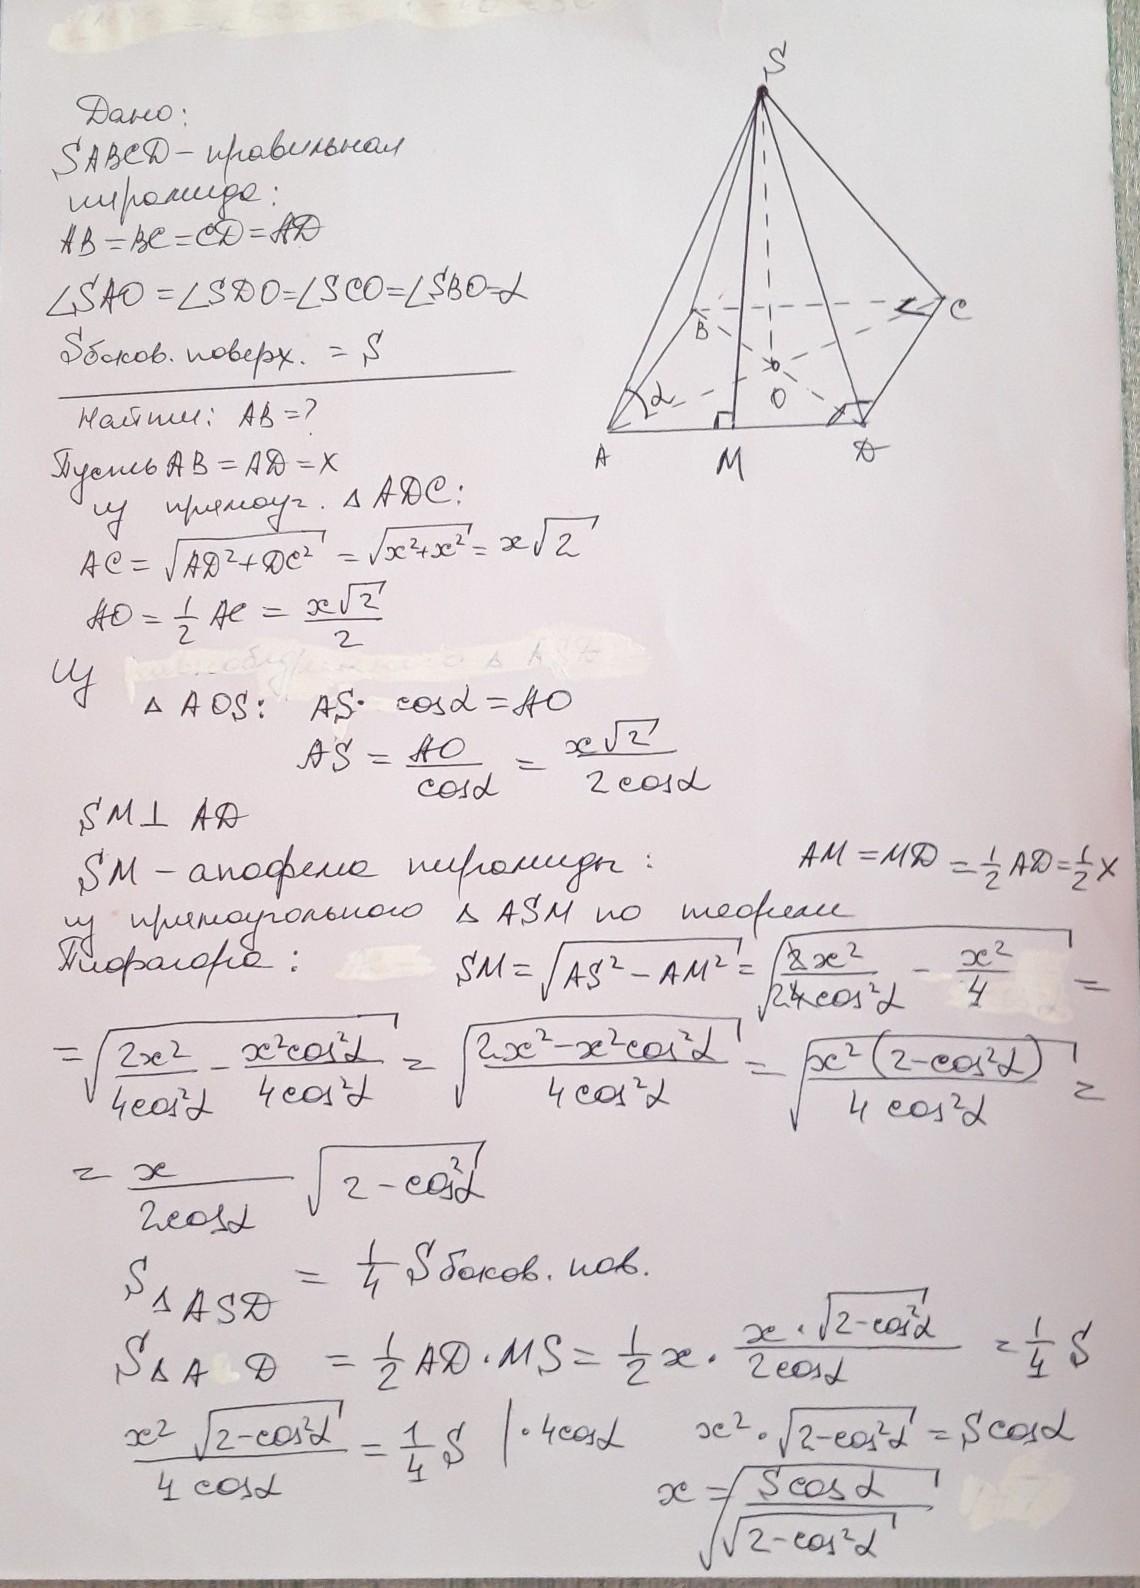 Дано:
SABCD – правильная
пирамида:
AB = BC = CD = AD
∠SAO = ∠SDO = ∠SCO = ∠SBO = α
Sбоков. поверх. = S
Найти: AB = ?
Пусть AB = AD = x
из прямоуг. △ ADC:
AC = √(AD² + DC²) = √(x² + x²) = x√2
AO = 1/2 AC = x√2/2
Из
△ AOS: AS · cosα = AO
AS = AO/cosα = x√2/(2cosα)
SM ⊥ AD
SM – апофема пирамиды: AM = MD = 1/2 AD = 1/2 x
из прямоугольного △ ASM по теореме
Пифагора: SM = √(AS² – AM²) = √(2x²/(4cos²α) – x²/4) =
= √(2x²/(4cos²α) – x²cos²α/(4cos²α)) = √((2x² – x²cos²α)/(4cos²α)) = √(x²(2 – cos²α)/(4cos²α)) =
= x/(2cosα) √(2 – cos²α)
S△ASD = 1/4 Sбоков. пов.
S△A D = 1/2 AD · MS = 1/2 x · x · √(2 – cos²α)/(2cosα) = 1/4 S
x²√(2 – cos²α)/(4cosα) = 1/4 S | · 4cosα x² · √(2 – cos²α) = S cosα
x = √(S cosα/√(2 – cos²α))
S
B
C
α
O
A
M
D